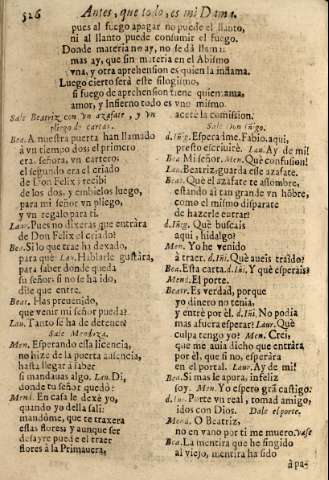 526 Antes, que todo, es mi Dama.
pues al fuego apagar no puede el llanto,
ni al llanto puede consumir el fuego.
Donde materia no ay, no se dà llama:
mas ay, que sin materia en el Abismo
vna, y otra aprehension es quien la inflama.
Luego cierto serà este silogismo,
si fuego de aprehension tiene quien ama,
amor, y Infierno todo es vno mismo.
Sale Beatriz con vn azafate, y vn
pliego de cartas.
Bea. A nuestra puerta han llamado
à vn tiempo dos; el primero
era, señora, vn cartero;
el segundo era el criado
de Don Felix; recibì
de los dos, y embidiòs luego,
para mi señor vn pliego,
y vn regalo para ti.
Lau. Pues no dixeras que entràra
de Don Felix el criado?
Bea. Si lo que trae hà dexado,
para què Lau. Hablarle gustàra,
para saber donde queda
su señor: si no se ha ido,
dile que entre.
Beat. Has preuenido,
que venir mi señor pueda?
Lau. Tanto se ha de detener?
Sale Mendoza.
Men. Esperando essa licencia,
no hize de la puerta ausencia,
hasta llegar à saber
si mandauas algo. Lau. Di,
donde tu señor quedò?
Mend. En casa le dexè yo,
quando yo della salì:
mandòme, que te traxera
estas flores; y aunque ser
desayre puede el traer
flores à la Primauera,
acetè la comission.
Sale Don Iñigo.
d.Iñig. Espera ime. Fabio, aqui,
presto escriuirè. Lau. Ay de mi!
Bea. Mi señor. Men. Què confusion!
Lau. Beatriz, guarda esse azafate.
Beat. Què el azafate te assombre,
estando ai tan grande vn hòbre,
como el mismo disparate
de hazerle entrar!
d.Iñig. Què buscais
aqui, hidalgo?
Men. Yo he venido
à traer. d.Iñi. Què aueis traìdo?
Bea. Esta carta. d.Iñi. Y què esperais?
Mend. El porte.
Beatr. Es verdad, porque
yo dinero no tenia,
y entrè por èl. d.Iñi. No podia
mas afuera esperar? Laur. Què
culpa tengo yo? Men. Crei,
que me auia dicho que entràra
por èl, que si no, esperàra
en el portal. Laur. Ay de mi!
Bea. Si mas le apura, infeliz
soy. Men. Yo espero grã castigo.
d.Iñi. Porte vn real, tomad amigo,
idos con Dios. Dale el porte.
Mend. O Beatriz,
no en vano por ti me muero. Vase
Bea. La mentira que he fingido
al viejo, mentira ha sido
àpa-